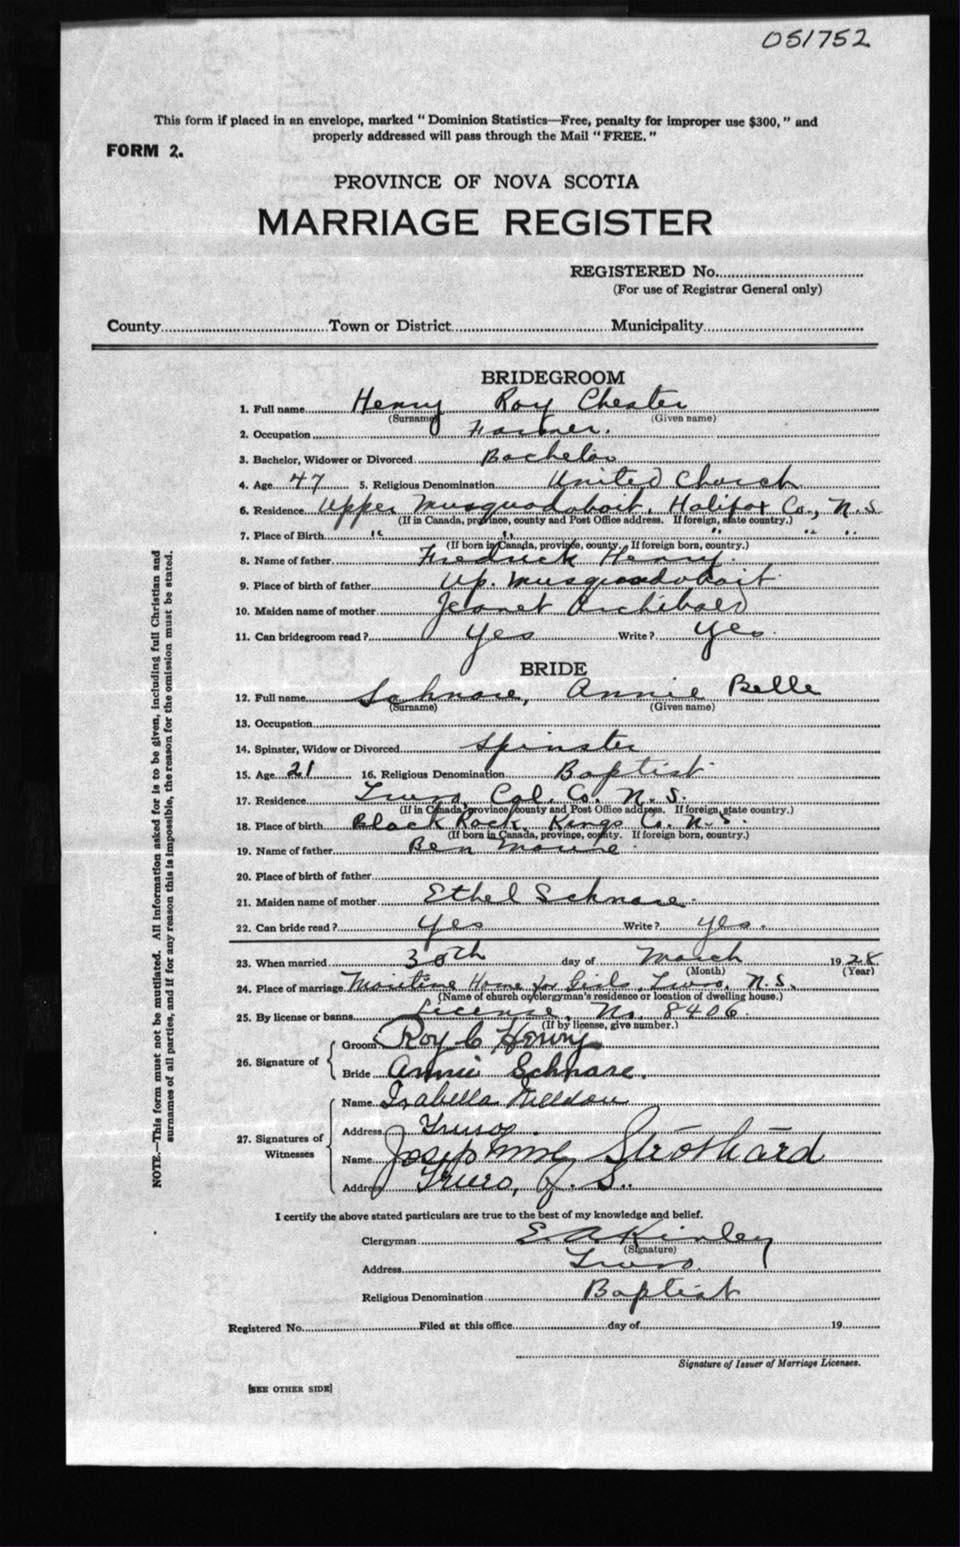 051752
This form if placed in an envelope, marked "Dominion Statistics—Free, penalty for improper use $300," and
properly addressed will pass through the Mail "FREE."
FORM 2.
PROVINCE OF NOVA SCOTIA
MARRIAGE REGISTER
REGISTERED No.
(For use of Registrar General only)
County Town or District Municipality
BRIDEGROOM
1. Full name Henry Roy Chester
(Surname) (Given name)
2. Occupation Farmer.
3. Bachelor, Widower or Divorced Bachelor
4. Age 47 5. Religious Denomination United Church
6. Residence Upper Musquodoboit, Halifax Co., N.S.
(If in Canada, province, county and Post Office address. If foreign, state country.)
7. Place of Birth " " " " "
(If born in Canada, province, county. If foreign born, country.)
8. Name of father Fredrick Henry.
9. Place of birth of father Up. Musquodoboit
10. Maiden name of mother Jeanet Archibald
11. Can bridegroom read? Yes Write? Yes.
BRIDE
12. Full name Schnare, Annie Belle
(Surname) (Given name)
13. Occupation
14. Spinster, Widow or Divorced Spinster
15. Age 21 16. Religious Denomination Baptist
17. Residence Truro, Col. Co. N.S.
(If in Canada, province, county and Post Office address. If foreign, state country.)
18. Place of birth Black Rock, Kings Co. N.S.
(If born in Canada, province, county. If foreign born, country.)
19. Name of father Ben
20. Place of birth of father
21. Maiden name of mother Ethel Schnare.
22. Can bride read? Yes Write? Yes.
23. When married 30th day of March 1928
(Month) (Year)
24. Place of marriage Maritime Home for Girls, Truro, N.S.
(Name of church or clergyman's residence or location of dwelling house.)
25. By license or banns License, No. 8406.
(If by license, give number.)
26. Signature of
Groom Roy C Henry
Bride Annie Schnare.
27. Signatures of Witnesses
Name Isabella
Address Truro.
Name Josephine Strothard
Address Truro, N.S.
I certify the above stated particulars are true to the best of my knowledge and belief.
Clergyman E. A Kinley
(Signature)
Address Truro.
Religious Denomination Baptist
Registered No. Filed at this office day of 19
Signature of Issuer of Marriage Licenses.
[SEE OTHER SIDE]
NOTE.—This form must not be mutilated. All information asked for is to be given, including full Christian and
surnames of all parties, and if for any reason this is impossible, the reason for the omission must be stated.